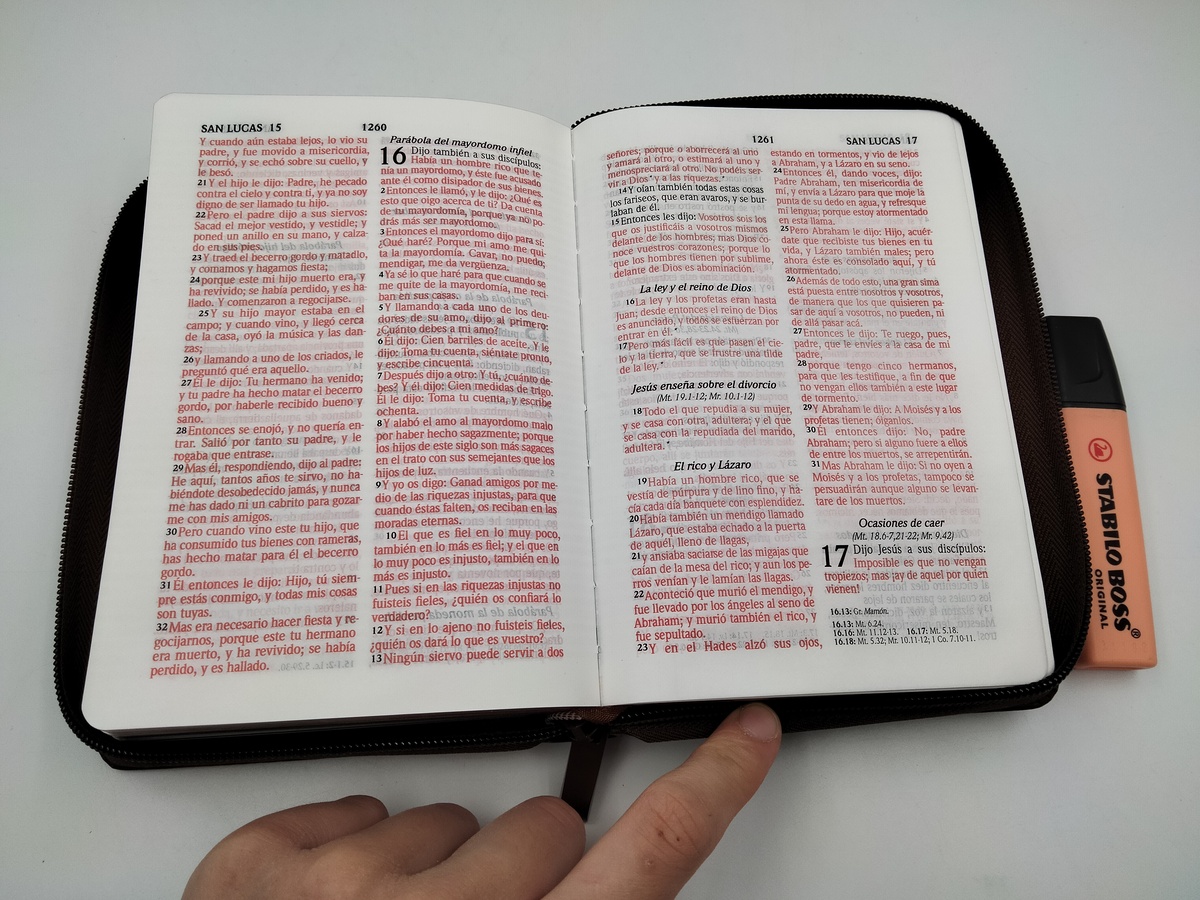 SAN LUCAS 15
1260
Y cuando aún estaba lejos, lo vio su
padre, y fue movido a misericordia,
y corrió, y se echó sobre su cuello, y
le besó.
21 Y el hijo le dijo: Padre, he pecado
contra el cielo y contra ti, y ya no soy
digno de ser llamado tu hijo.
22 Pero el padre dijo a sus siervos:
Sacad el mejor vestido, y vestidle; y
poned un anillo en su mano, y calza-
do en sus pies.
23 Y traed el becerro gordo y matadlo,
y comamos y hagamos fiesta;
24 porque este mi hijo muerto era, y
ha revivido; se había perdido, y es ha-
llado. Y comenzaron a regocijarse.
25 Y su hijo mayor estaba en el
campo; y cuando vino, y llegó cerca
de la casa, oyó la música y las dan-
zas;
26 y llamando a uno de los criados, le
preguntó qué era aquello.
27 Él le dijo: Tu hermano ha venido;
y tu padre ha hecho matar el becerro
gordo, por haberle recibido bueno y
sano.
28 Entonces se enojó, y no quería en-
trar. Salió por tanto su padre, y le
rogaba que entrase.
29 Mas él, respondiendo, dijo al padre:
He aquí, tantos años te sirvo, no ha-
biéndote desobedecido jamás, y nunca
me has dado ni un cabrito para gozar-
me con mis amigos.
30 Pero cuando vino este tu hijo, que
ha consumido tus bienes con rameras,
has hecho matar para él el becerro
gordo.
31 Él entonces le dijo: Hijo, tú siem-
pre estás conmigo, y todas mis cosas
son tuyas.
32 Mas era necesario hacer fiesta y re-
gocijarnos, porque este tu hermano
era muerto, y ha revivido; se había
perdido, y es hallado.
Parábola del mayordomo infiel
16 Dijo también a sus discípulos:
Había un hombre rico que te-
nía un mayordomo, y éste fue acusado
ante él como disipador de sus bienes.
2 Entonces le llamó, y le dijo: ¿Qué es
esto que oigo acerca de ti? Da cuenta
de tu mayordomía, porque ya no po-
drás más ser mayordomo.
3 Entonces el mayordomo dijo para sí:
¿Qué haré? Porque mi amo me qui-
ta la mayordomía. Cavar, no puedo;
mendigar, me da vergüenza.
4 Ya sé lo que haré para que cuando se
me quite de la mayordomía, me reci-
ban en sus casas.
5 Y llamando a cada uno de los deu-
dores de su amo, dijo al primero:
¿Cuánto debes a mi amo?
6 Él dijo: Cien barriles de aceite. Y le
dijo: Toma tu cuenta, siéntate pronto,
y escribe cincuenta.
7 Después dijo a otro: Y tú, ¿cuánto de-
bes? Y él dijo: Cien medidas de trigo.
Él le dijo: Toma tu cuenta, y escribe
ochenta.
8 Y alabó el amo al mayordomo malo
por haber hecho sagazmente; porque
los hijos de este siglo son más sagaces
en el trato con sus semejantes que los
hijos de luz.
9 Y yo os digo: Ganad amigos por me-
dio de las riquezas injustas, para que
cuando éstas falten, os reciban en las
moradas eternas.
10 El que es fiel en lo muy poco,
también en lo más es fiel; y el que en
lo muy poco es injusto, también en lo
más es injusto.
11 Pues si en las riquezas injustas no
fuisteis fieles, ¿quién os confiará lo
verdadero?
12 Y si en lo ajeno no fuisteis fieles,
¿quién os dará lo que es vuestro?
13 Ningún siervo puede servir a dos
1261
SAN LUCAS 17
señores; porque o aborrecerá al uno
y amará al otro, o estimará al uno y
menospreciará al otro. No podéis ser-
vir a Dios* y a las riquezas.*
14 Y oían también todas estas cosas
los fariseos, que eran avaros, y se bur-
laban de él.
15 Entonces les dijo: Vosotros sois los
que os justificáis a vosotros mismos
delante de los hombres; mas Dios co-
noce vuestros corazones; porque lo
que los hombres tienen por sublime,
delante de Dios es abominación.
La ley y el reino de Dios
16 La ley y los profetas eran hasta
Juan; desde entonces el reino de Dios
es anunciado, y todos se esfuerzan por
entrar en él.*
17 Pero más fácil es que pasen el cie-
lo y la tierra, que se frustre una tilde
de la ley.*
Jesús enseña sobre el divorcio
(Mt. 19.1-12; Mr. 10.1-12)
18 Todo el que repudia a su mujer,
y se casa con otra, adultera; y el que
se casa con la repudiada del marido,
adultera.*
El rico y Lázaro
19 Había un hombre rico, que se
vestía de púrpura y de lino fino, y ha-
cía cada día banquete con esplendidez.
20 Había también un mendigo llamado
Lázaro, que estaba echado a la puerta
de aquél, lleno de llagas,
21 y ansiaba saciarse de las migajas que
caían de la mesa del rico; y aun los pe-
rros venían y le lamían las llagas.
22 Aconteció que murió el mendigo, y
fue llevado por los ángeles al seno de
Abraham; y murió también el rico, y
fue sepultado.
23 Y en el Hades alzó sus ojos,
estando en tormentos, y vio de lejos
a Abraham, y a Lázaro en su seno.
24 Entonces él, dando voces, dijo:
Padre Abraham, ten misericordia de
mí, y envía a Lázaro para que moje la
punta de su dedo en agua, y refresque
mi lengua; porque estoy atormentado
en esta llama.
25 Pero Abraham le dijo: Hijo, acuér-
date que recibiste tus bienes en tu
vida, y Lázaro también males; pero
ahora éste es consolado aquí, y tú
atormentado.
26 Además de todo esto, una gran sima
está puesta entre nosotros y vosotros,
de manera que los que quisieren pa-
sar de aquí a vosotros, no pueden, ni
de allá pasar acá.
27 Entonces le dijo: Te ruego, pues,
padre, que le envíes a la casa de mi
padre,
28 porque tengo cinco hermanos,
para que les testifique, a fin de que
no vengan ellos también a este lugar
de tormento.
29 Y Abraham le dijo: A Moisés y a los
profetas tienen; óiganlos.
30 Él entonces dijo: No, padre
Abraham; pero si alguno fuere a ellos
de entre los muertos, se arrepentirán.
31 Mas Abraham le dijo: Si no oyen a
Moisés y a los profetas, tampoco se
persuadirán aunque alguno se levan-
tare de los muertos.
Ocasiones de caer
(Mt. 18.6-7,21-22; Mr. 9.42)
17 Dijo Jesús a sus discípulos:
Imposible es que no vengan
tropiezos; mas ¡ay de aquel por quien
vienen!
16.13: Gr. Mamón.
16.13: Mt. 6.24.
16.16: Mt. 11.12-13. 16.17: Mt. 5.18.
16.18: Mt. 5.32; Mr. 10.11-12; 1 Co. 7.10-11.
STABILO BOSS®
ORIGINAL